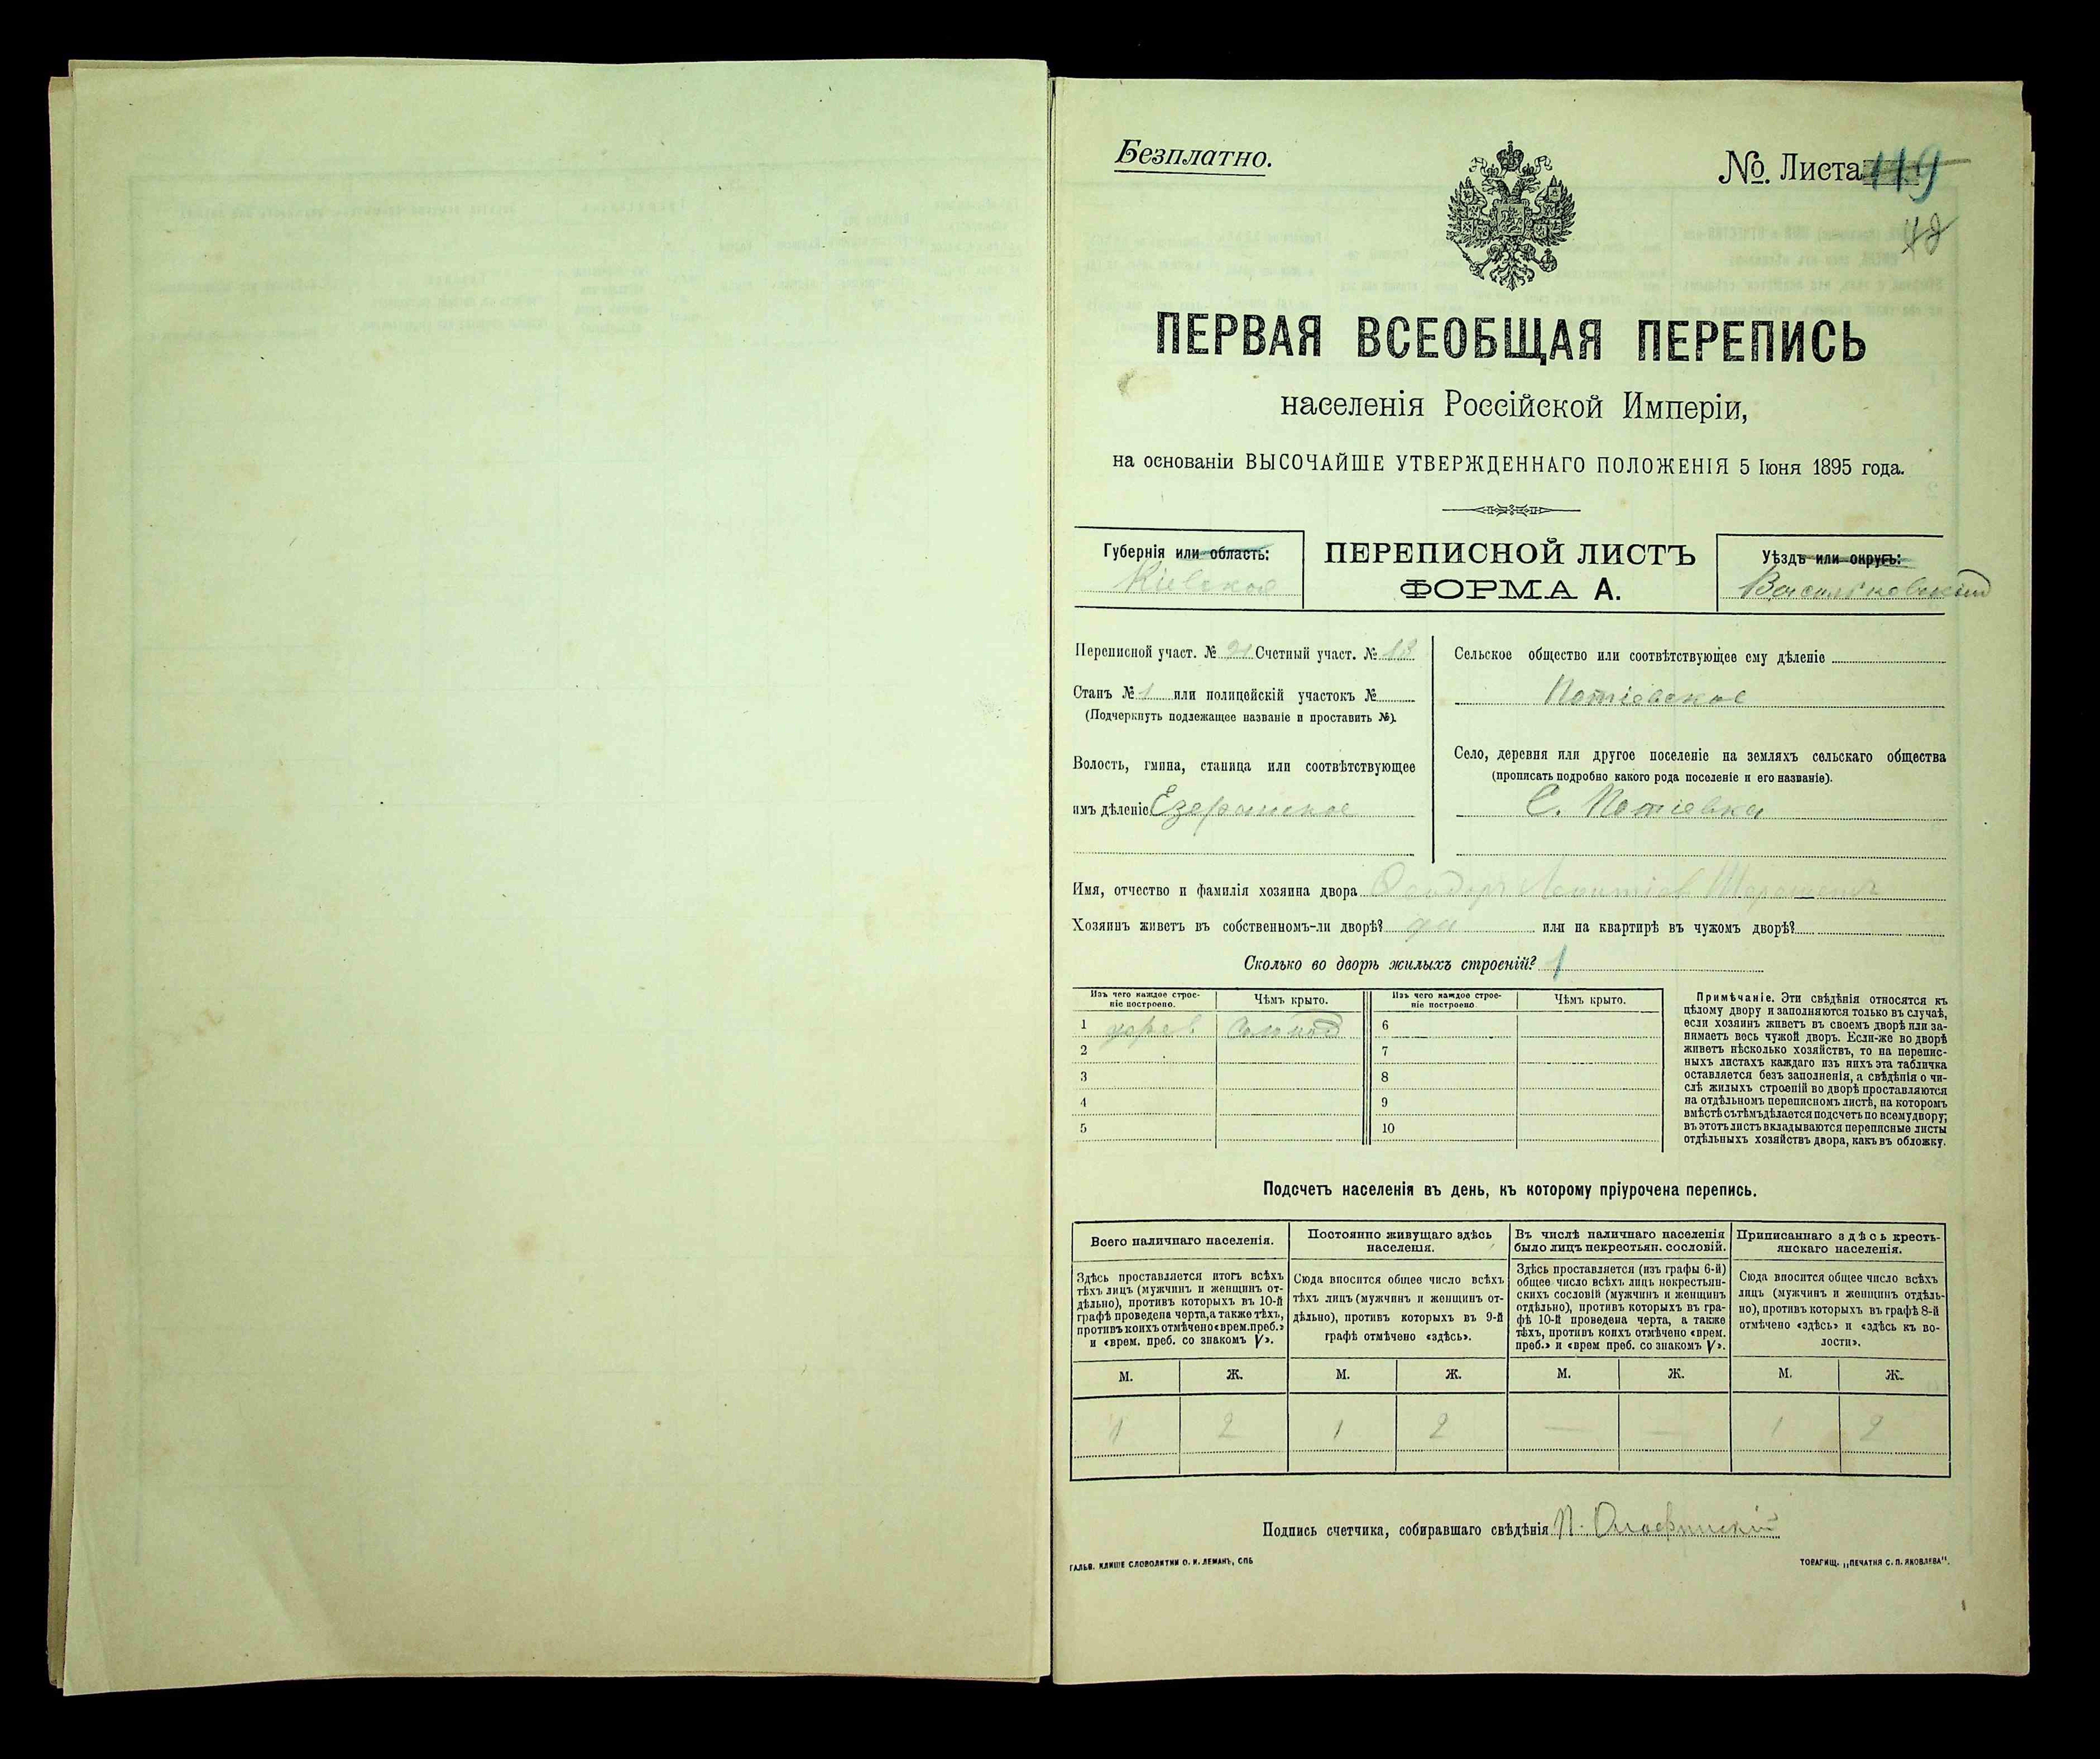 Безплатно.
№. Листа 119
48
ПЕРВАЯ ВСЕОБЩАЯ ПЕРЕПИСЬ
населенія Россійской Имперіи,
на основаніи ВЫСОЧАЙШЕ УТВЕРЖДЕННАГО ПОЛОЖЕНІЯ 5 Іюня 1895 года.
Губернія или область:
Кіевская
ПЕРЕПИСНОЙ ЛИСТЪ
ФОРМА А.
Уѣздъ или округъ:
Васильковскій
Переписной участ. № Счетный участ. № 13
Станъ № 1 или полицейскій участокъ №
(Подчеркнуть подлежащее названіе и проставить №).
Волость, гмина, станица или соотвѣтствующее
имъ дѣленіе Езерянское
Сельское общество или соотвѣтствующее ему дѣленіе
Потіевское
Село, деревня или другое поселеніе на земляхъ сельскаго общества
(прописать подробно какого рода поселеніе и его названіе).
С. Потіевка
Имя, отчество и фамилія хозяина двора
Хозяинъ живетъ въ собственномъ-ли дворѣ? да или на квартирѣ въ чужомъ дворѣ?
Сколько во дворѣ жилыхъ строеній? 1
Изъ чего каждое строе-
ніе построено.
Чѣмъ крыто.
Изъ чего каждое строе-
ніе построено
Чѣмъ крыто.
1 дерев соломой
2
3
4
5
6
7
8
9
10
Примѣчаніе. Эти свѣдѣнія относятся къ
цѣлому двору и заполняются только въ случаѣ,
если хозяинъ живетъ въ своемъ дворѣ или за-
нимаетъ весь чужой дворъ. Если-же во дворѣ
живетъ нѣсколько хозяйствъ, то на перепис-
ныхъ листахъ каждаго изъ нихъ эта табличка
оставляется безъ заполненія, а свѣдѣнія о чи-
слѣ жилыхъ строеній во дворѣ проставляются
на отдѣльномъ переписномъ листѣ, на которомъ
вмѣстѣ съ тѣмъ дѣлается подсчетъ по всему двору;
въ этотъ листъ вкладываются переписные листы
отдѣльныхъ хозяйствъ двора, какъ въ обложку.
Подсчетъ населенія въ день, къ которому пріурочена перепись.
Всего наличнаго населенія.
Здѣсь проставляется итогъ всѣхъ
тѣхъ лицъ (мужчинъ и женщинъ от-
дѣльно), противъ которыхъ въ 10-й
графѣ проведена черта, а также тѣхъ,
противъ коихъ отмѣчено «врем. преб.»
и «врем. преб. со знакомъ V».
Постоянно живущаго здѣсь
населенія.
Сюда вносится общее число всѣхъ
тѣхъ лицъ (мужчинъ и женщинъ от-
дѣльно), противъ которыхъ въ 9-й
графѣ отмѣчено «здѣсь».
Въ числѣ наличнаго населенія
было лицъ некрестьян. сословій.
Здѣсь проставляется (изъ графы 6-й)
общее число всѣхъ лицъ некрестьян-
скихъ сословій (мужчинъ и женщинъ
отдѣльно), противъ которыхъ въ гра-
фѣ 10-й проведена черта, а также
тѣхъ, противъ коихъ отмѣчено «врем.
преб.» и «врем преб. со знакомъ V».
Приписаннаго здѣсь кресть-
янскаго населенія.
Сюда вносится общее число всѣхъ
лицъ (мужчинъ и женщинъ отдѣль-
но), противъ которыхъ въ графѣ 8-й
отмѣчено «здѣсь» и «здѣсь къ во-
лости».
М. Ж. М. Ж. М. Ж. М. Ж.
1 2 1 2 — — 1 2
Подпись счетчика, собиравшаго свѣдѣнія
ГАЛЬВ. КЛИШЕ СЛОВОЛИТНИ О. И. ЛЕМАНЪ, СПБ
ТОВАРИЩ. „ПЕЧАТНЯ С. П. ЯКОВЛЕВА".